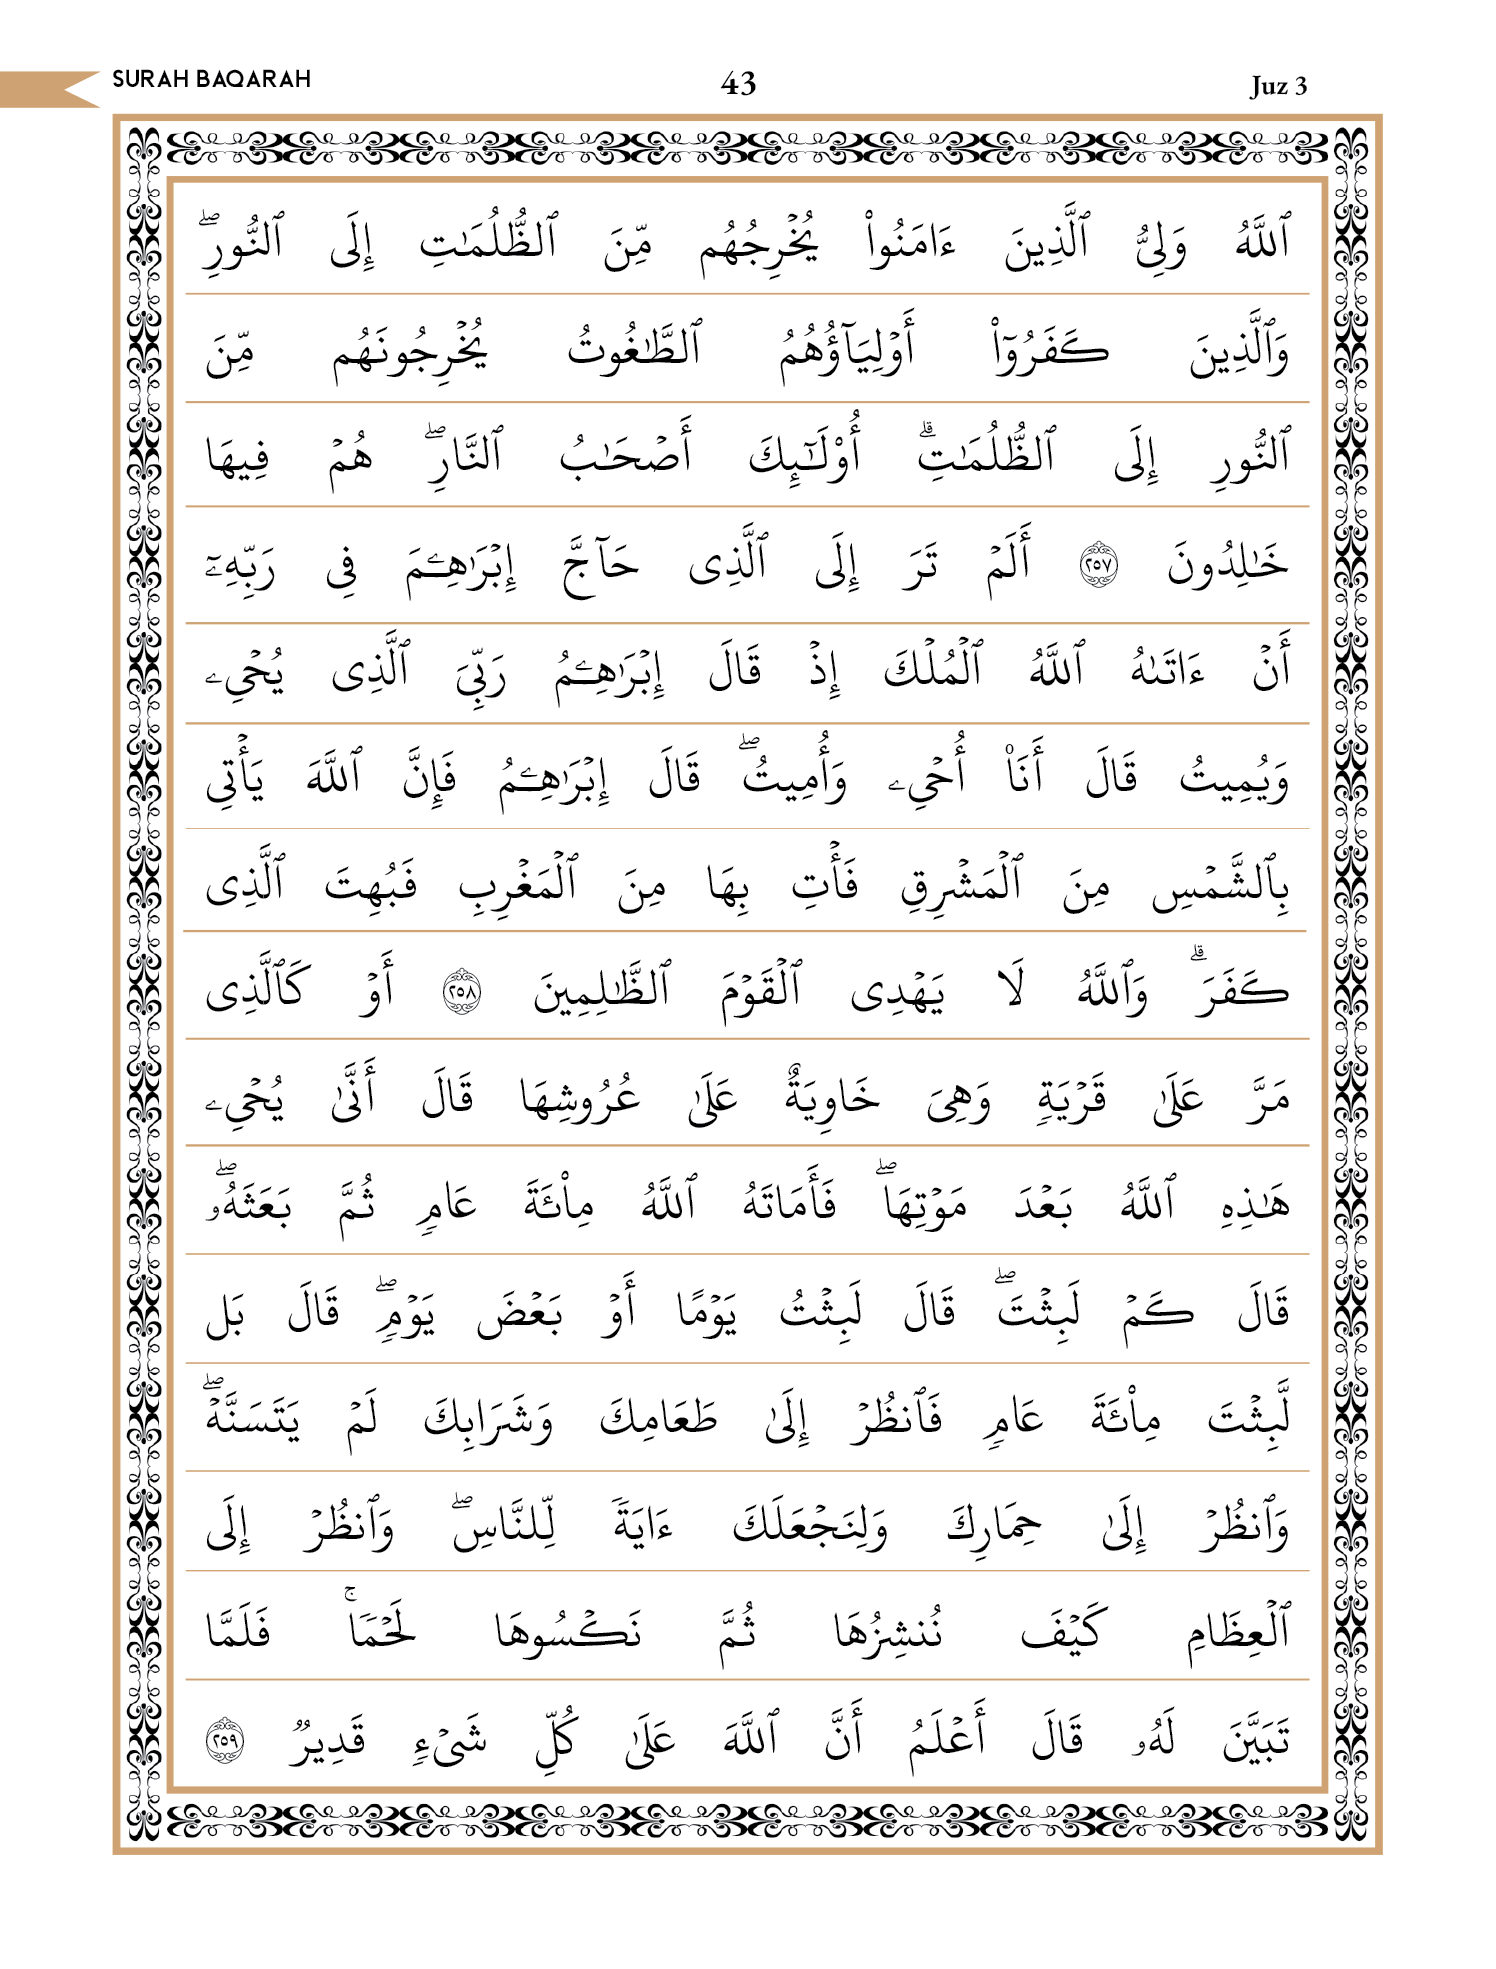 SURAH BAQARAH 43 Juz 3
ٱللَّهُ وَلِىُّ ٱلَّذِينَ ءَامَنُوا۟ يُخْرِجُهُم مِّنَ ٱلظُّلُمَـٰتِ إِلَى ٱلنُّورِ ۖ
وَٱلَّذِينَ كَفَرُوٓا۟ أَوْلِيَآؤُهُمُ ٱلطَّـٰغُوتُ يُخْرِجُونَهُم مِّنَ
ٱلنُّورِ إِلَى ٱلظُّلُمَـٰتِ ۗ أُو۟لَـٰٓئِكَ أَصْحَـٰبُ ٱلنَّارِ ۖ هُمْ فِيهَا
خَـٰلِدُونَ ٢٥٧ أَلَمْ تَرَ إِلَى ٱلَّذِى حَآجَّ إِبْرَٰهِـۧمَ فِى رَبِّهِۦٓ
أَنْ ءَاتَىٰهُ ٱللَّهُ ٱلْمُلْكَ إِذْ قَالَ إِبْرَٰهِـۧمُ رَبِّىَ ٱلَّذِى يُحْىِۦ
وَيُمِيتُ قَالَ أَنَا۠ أُحْىِۦ وَأُمِيتُ ۖ قَالَ إِبْرَٰهِـۧمُ فَإِنَّ ٱللَّهَ يَأْتِى
بِٱلشَّمْسِ مِنَ ٱلْمَشْرِقِ فَأْتِ بِهَا مِنَ ٱلْمَغْرِبِ فَبُهِتَ ٱلَّذِى
كَفَرَ ۗ وَٱللَّهُ لَا يَهْدِى ٱلْقَوْمَ ٱلظَّـٰلِمِينَ ٢٥٨ أَوْ كَٱلَّذِى
مَرَّ عَلَىٰ قَرْيَةٍ وَهِىَ خَاوِيَةٌ عَلَىٰ عُرُوشِهَا قَالَ أَنَّىٰ يُحْىِۦ
هَـٰذِهِ ٱللَّهُ بَعْدَ مَوْتِهَا ۖ فَأَمَاتَهُ ٱللَّهُ مِا۟ئَةَ عَامٍ ثُمَّ بَعَثَهُۥ ۖ
قَالَ كَمْ لَبِثْتَ ۖ قَالَ لَبِثْتُ يَوْمًا أَوْ بَعْضَ يَوْمٍ ۖ قَالَ بَل
لَّبِثْتَ مِا۟ئَةَ عَامٍ فَٱنظُرْ إِلَىٰ طَعَامِكَ وَشَرَابِكَ لَمْ يَتَسَنَّهْ ۖ
وَٱنظُرْ إِلَىٰ حِمَارِكَ وَلِنَجْعَلَكَ ءَايَةً لِّلنَّاسِ ۖ وَٱنظُرْ إِلَى
ٱلْعِظَامِ كَيْفَ نُنشِزُهَا ثُمَّ نَكْسُوهَا لَحْمًا ۚ فَلَمَّا
تَبَيَّنَ لَهُۥ قَالَ أَعْلَمُ أَنَّ ٱللَّهَ عَلَىٰ كُلِّ شَىْءٍ قَدِيرٌ ٢٥٩